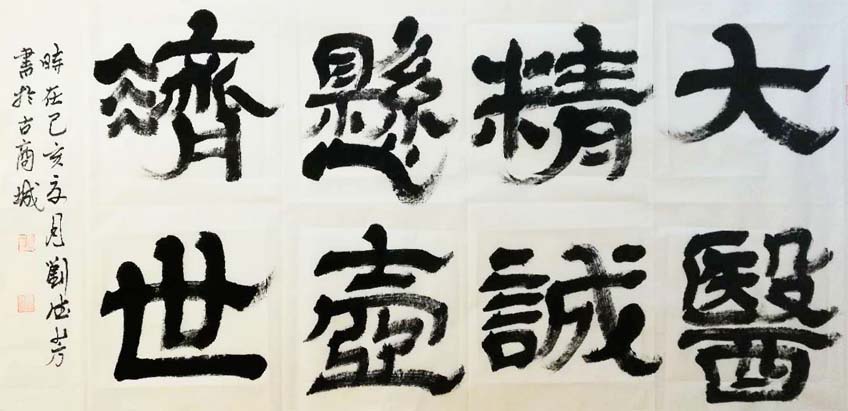 大醫
精誠
懸壺
濟世
時在己亥夏月劉德芳
書於古商城